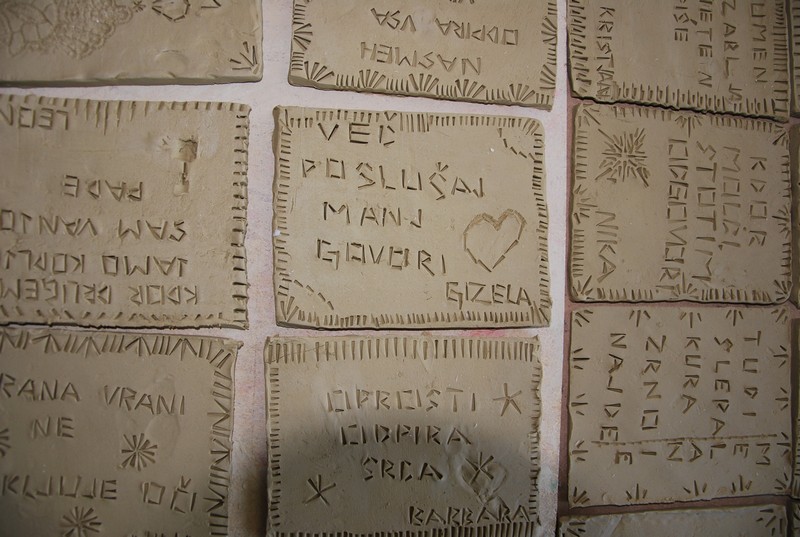 NASMEH
ODPIRA VSA
UMEN
KRISTJAN
LEON
KDOR DRUGEM
JAMO KOPLJE
SAM VANJO
PADE
VEČ
POSLUŠAJ
MANJ
GOVORI
GIZELA
KDOR
MOLČI,
STOTIM
ODGOVORI
NIKA
VRANA VRANI
NE
KLJUJE OČI
OPROSTI
ODPIRA
SRCA
BARBARA
TUDI
SLEPA
KURA
ZRNO
NAJDE